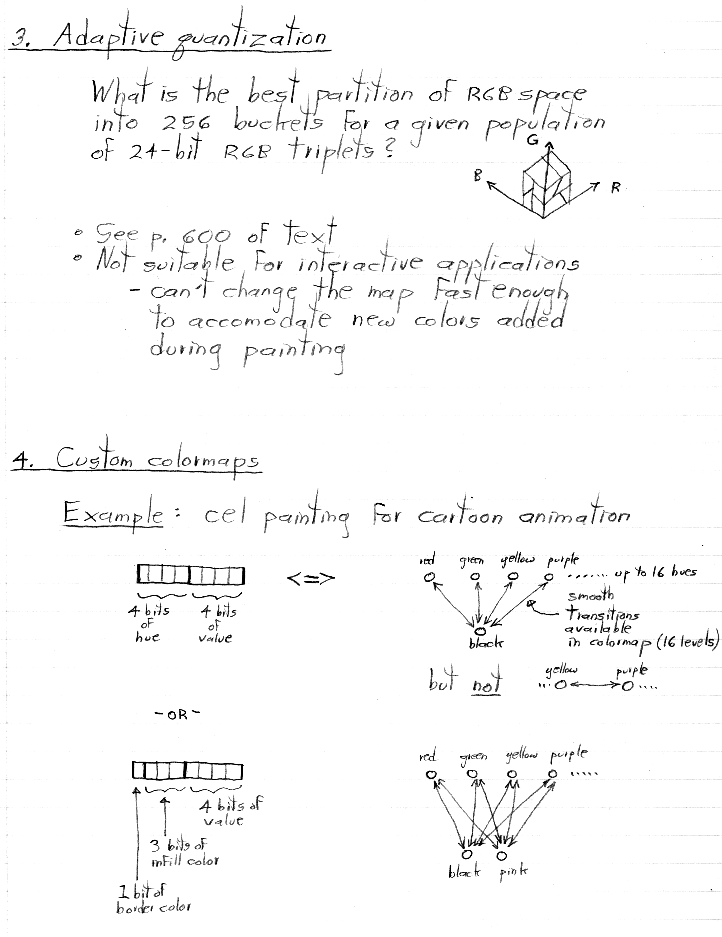 3. Adaptive quantization
What is the best partition of RGB space
into 256 buckets for a given population
of 24-bit RGB triplets?
G
B
R
• See p. 600 of text
• Not suitable for interactive applications
- can't change the map fast enough
to accomodate new colors added
during painting
4. Custom colormaps
Example: cel painting for cartoon animation
<=>
red green yellow purple
...... up to 16 hues
4 bits of hue
4 bits of value
smooth
transitions
available
in colormap (16 levels)
black
but not
yellow purple
... ....
-OR-
red green yellow purple
.....
4 bits of
value
3 bits of
infill color
1 bit of
border color
black pink